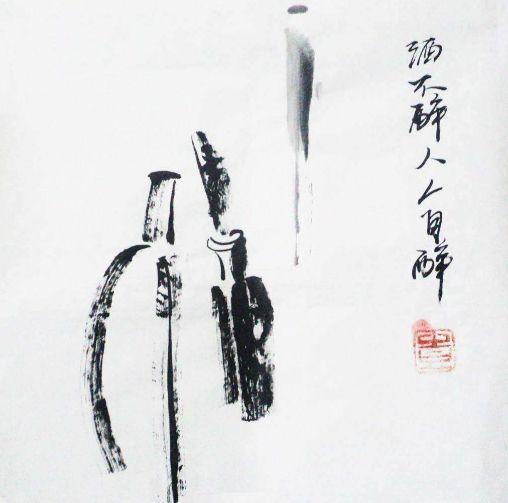 酒不醉人人自醉